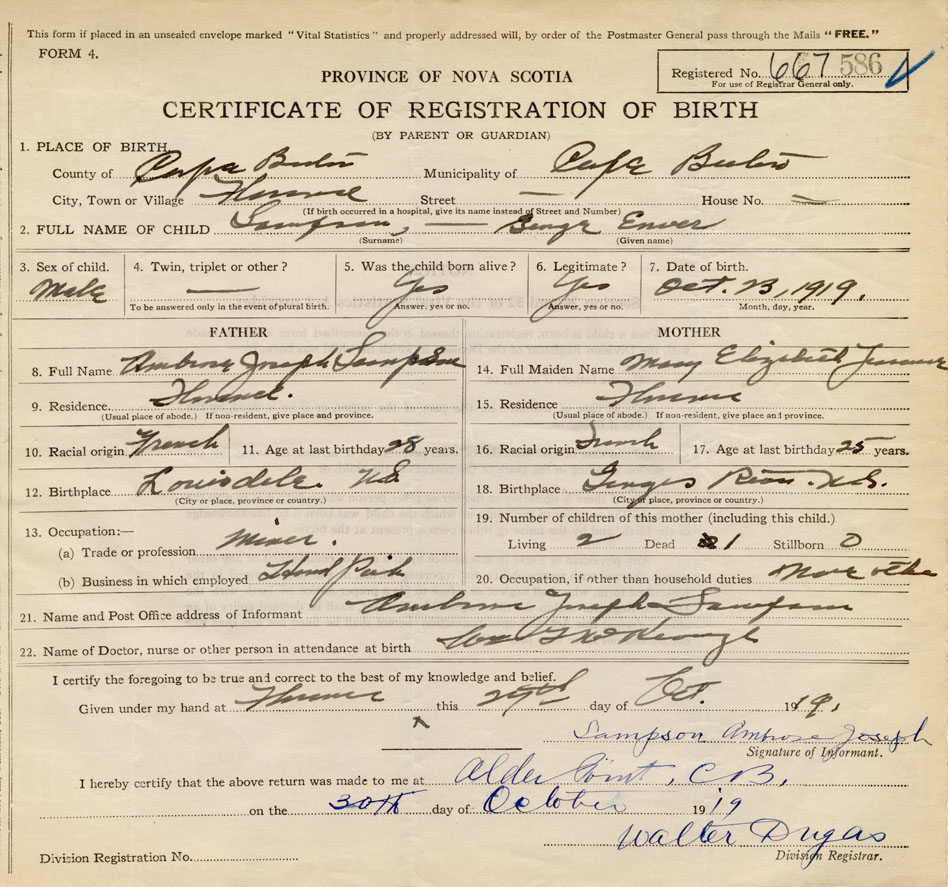 This form if placed in an unsealed envelope marked "Vital Statistics" and properly addressed will, by order of the Postmaster General pass through the Mails "FREE."
FORM 4.
Registered No. 667 586
For use of Registrar General only.
PROVINCE OF NOVA SCOTIA
CERTIFICATE OF REGISTRATION OF BIRTH
(BY PARENT OR GUARDIAN)
1. PLACE OF BIRTH
County of Cape Breton Municipality of Cape Breton
City, Town or Village Florence Street — House No. —
(If birth occurred in a hospital, give its name instead of Street and Number)
2. FULL NAME OF CHILD Sampson, — George
(Surname) (Given name)
3. Sex of child. 4. Twin, triplet or other? 5. Was the child born alive? 6. Legitimate? 7. Date of birth.
Male — Yes Yes Oct. 23, 1919.
To be answered only in the event of plural birth. Answer, yes or no. Answer, yes or no. Month, day, year.
FATHER MOTHER
8. Full Name Ambrose Joseph Sampson 14. Full Maiden Name Mary Elizabeth
9. Residence. Florence. 15. Residence Florence
(Usual place of abode.) If non-resident, give place and province. (Usual place of abode.) If non-resident, give place and province.
10. Racial origin French 11. Age at last birthday 28 years. 16. Racial origin French 17. Age at last birthday 25 years.
12. Birthplace Louisdale. N.S. 18. Birthplace N.S.
(City or place, province or country.) (City or place, province or country.)
13. Occupation:— 19. Number of children of this mother (including this child.)
(a) Trade or profession Miner. Living 2 Dead 1 Stillborn 0
(b) Business in which employed Hand Pick 20. Occupation, if other than household duties other
21. Name and Post Office address of Informant Ambrose Joseph Sampson
22. Name of Doctor, nurse or other person in attendance at birth Wm McKeough
I certify the foregoing to be true and correct to the best of my knowledge and belief.
Given under my hand at Florence this 29th day of Oct. 1919.
Sampson Ambrose Joseph
Signature of Informant.
I hereby certify that the above return was made to me at Alder Point, C B,
on the 30th day of October 1919
Walter Dugas
Division Registration No. Division Registrar.